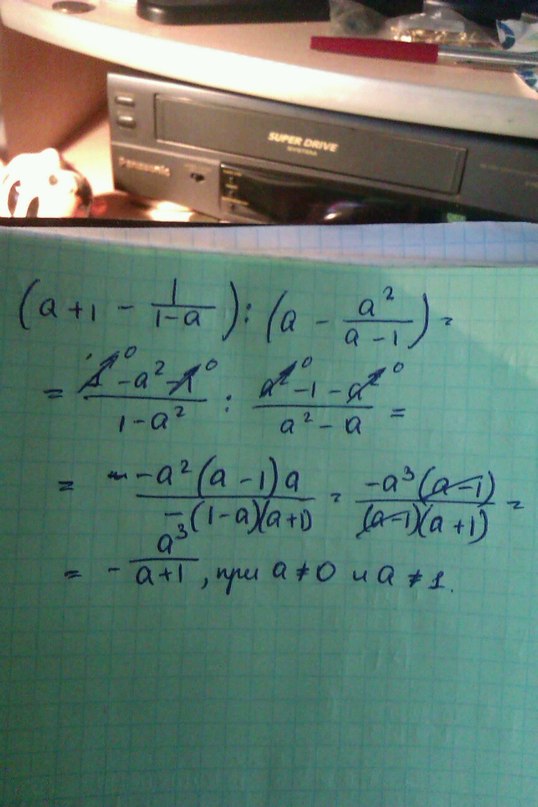 SUPER DRIVE
SYSTEM
Panasonic
(a + 1 - \frac{1}{1-a}) : (a - \frac{a^2}{a-1}) =
= \frac{1 - a^2 - 1}{1 - a^2} : \frac{a^2 - 1 - a^2}{a^2 - a} =
= \frac{-a^2(a-1)a}{-(1-a)(a+1)} = \frac{-a^3(a-1)}{(a-1)(a+1)} =
= -\frac{a^3}{a+1}, при a ≠ 0 и a ≠ 1.